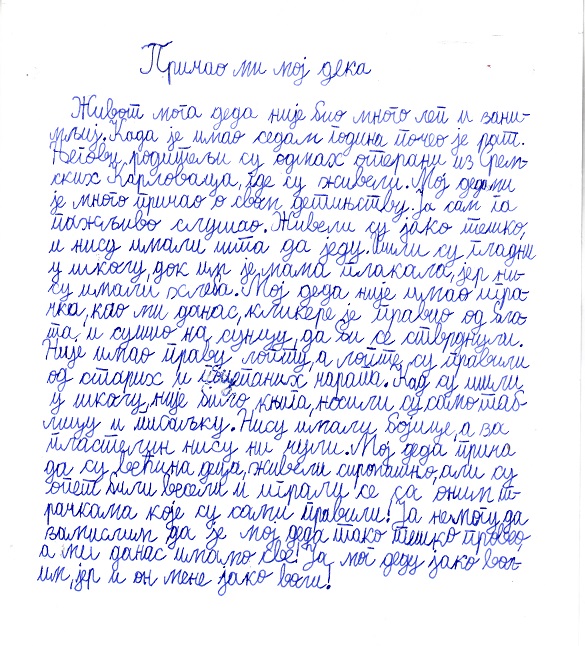 Причао ми мој дека
Живот мога деда није био много леп и зани-
мљив. Када је имао седам година почео је рат.
Његови родитељи су одмах отерани из Срем-
ских Карловаца, где су живели. Мој деда ми
је много причао о свом детињству. Ја сам га
пажљиво слушао. Живели су јако тешко,
и нису имали шта да једу. Ишли су гладни
у школу, док им је мама плакала, јер ни-
су имали хлеба. Мој деда није имао игра-
чка, као ми данас, кликере је правио од бла-
та, и сушио на сунцу, да би се стврднули.
Није имао праву лопту, а лопте су правили
од старих и поцепаних чарапа. Кад су ишли
у школу, није било књига, носили су само таб-
лицу и писаљку. Нису имали бојице, а за
пластелин нису ни чули. Мој деда прича
да су већина деца, живели сиромашно, али су
опет били весели и играли се са оним иг-
рачкама које су сами правили! Ја не могу да
замислим да је мој деда тако тешко провео,
а ми данас имамо све! Ја мог деду јако вол-
им, јер и он мене јако воли!